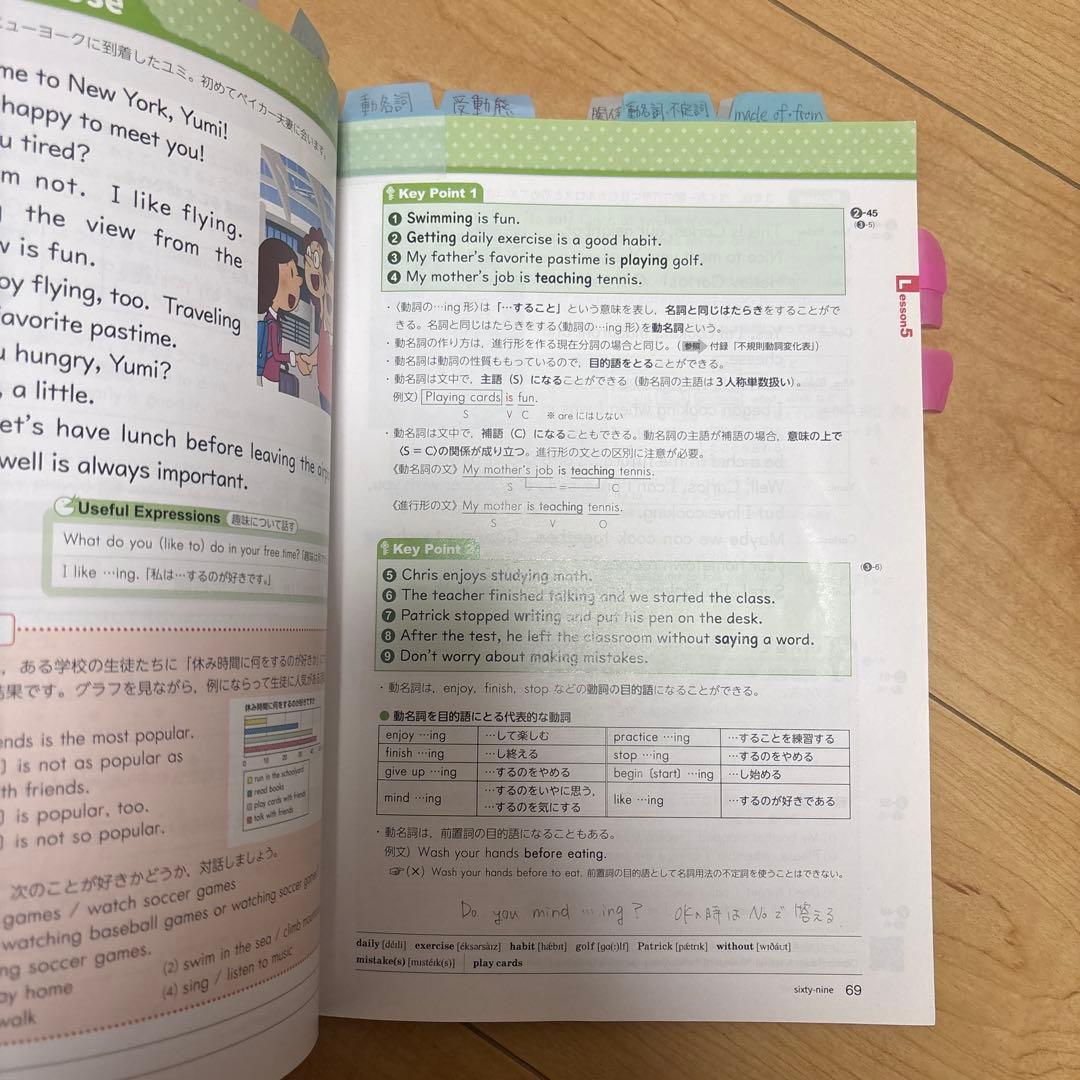 ose
ューヨークに到着したユミ。初めてベイカー夫妻に会います。
me to New York, Yumi!
happy to meet you!
u tired?
m not. I like flying.
the view from the
w is fun.
oy flying, too. Traveling
favorite pastime.
u hungry, Yumi?
, a little.
et's have lunch before leaving the
well is always important.
Useful Expressions 趣味について話す
What do you (like to) do in your free time?
I like …ing.「私は…するのが好きです。」
ある学校の生徒たちに「休み時間に何をするのが好きか」
結果です。グラフを見ながら、例にならって生徒に人気がある
休み時間に何をするのが好きですか
0 10 20 30 40
run in the schoolyard
read books
play cards with friends
talk with friends
ends is the most popular.
) is not as popular as
th friends.
) is popular, too.
) is not so popular.
次のことが好きかどうか、対話しましょう。
games / watch soccer games
watching baseball games or watching soccer games
ng soccer games.
(2) swim in the sea / climb mountains
ay home
(4) sing / listen to music
walk
動名詞
受動態
動名詞・不定詞
made of・from
Key Point 1
❶ Swimming is fun.
❷ Getting daily exercise is a good habit.
❸ My father's favorite pastime is playing golf.
❹ My mother's job is teaching tennis.
❷-45
(❸-5)
Lesson5
・〈動詞の…ing 形〉は「…すること」という意味を表し、名詞と同じはたらきをすることがで
きる。名詞と同じはたらきをする〈動詞の…ing 形〉を動名詞という。
・動名詞の作り方は、進行形を作る現在分詞の場合と同じ。(参照 付録「不規則動詞変化表」)
・動名詞は動詞の性質ももっているので、目的語をとることができる。
・動名詞は文中で、主語(S)になることができる(動名詞の主語は3人称単数扱い)。
例文) Playing cards is fun.
S V C ※ are にはしない
・動名詞は文中で、補語(C)になることもできる。動名詞の主語が補語の場合、意味の上で
〈S = C〉の関係が成り立つ。進行形の文との区別に注意が必要。
《動名詞の文》My mother's job is teaching tennis.
S = C
《進行形の文》My mother is teaching tennis.
S V O
Key Point 2
❺ Chris enjoys studying math.
❻ The teacher finished talking and we started the class.
❼ Patrick stopped writing and put his pen on the desk.
❽ After the test, he left the classroom without saying a word.
❾ Don't worry about making mistakes.
(❸-6)
・動名詞は、enjoy, finish, stop などの動詞の目的語になることができる。
● 動名詞を目的語にとる代表的な動詞
enjoy …ing …して楽しむ practice …ing …することを練習する
finish …ing …し終える stop …ing …するのをやめる
give up …ing …するのをやめる begin〔start〕…ing …し始める
mind …ing …するのをいやに思う、…するのを気にする like …ing …するのが好きである
・動名詞は、前置詞の目的語になることもある。
例文) Wash your hands before eating.
☞(×) Wash your hands before to eat. 前置詞の目的語として名詞用法の不定詞を使うことはできない。
Do you mind …ing? OKの時はNoで答える
daily [déili] exercise [éksərsàiz] habit [hǽbɪt] golf [ɡɑ(ː)lf] Patrick [pǽtrɪk] without [wɪðáʊt]
mistake(s) [mɪstéɪk(s)] play cards
sixty-nine 69